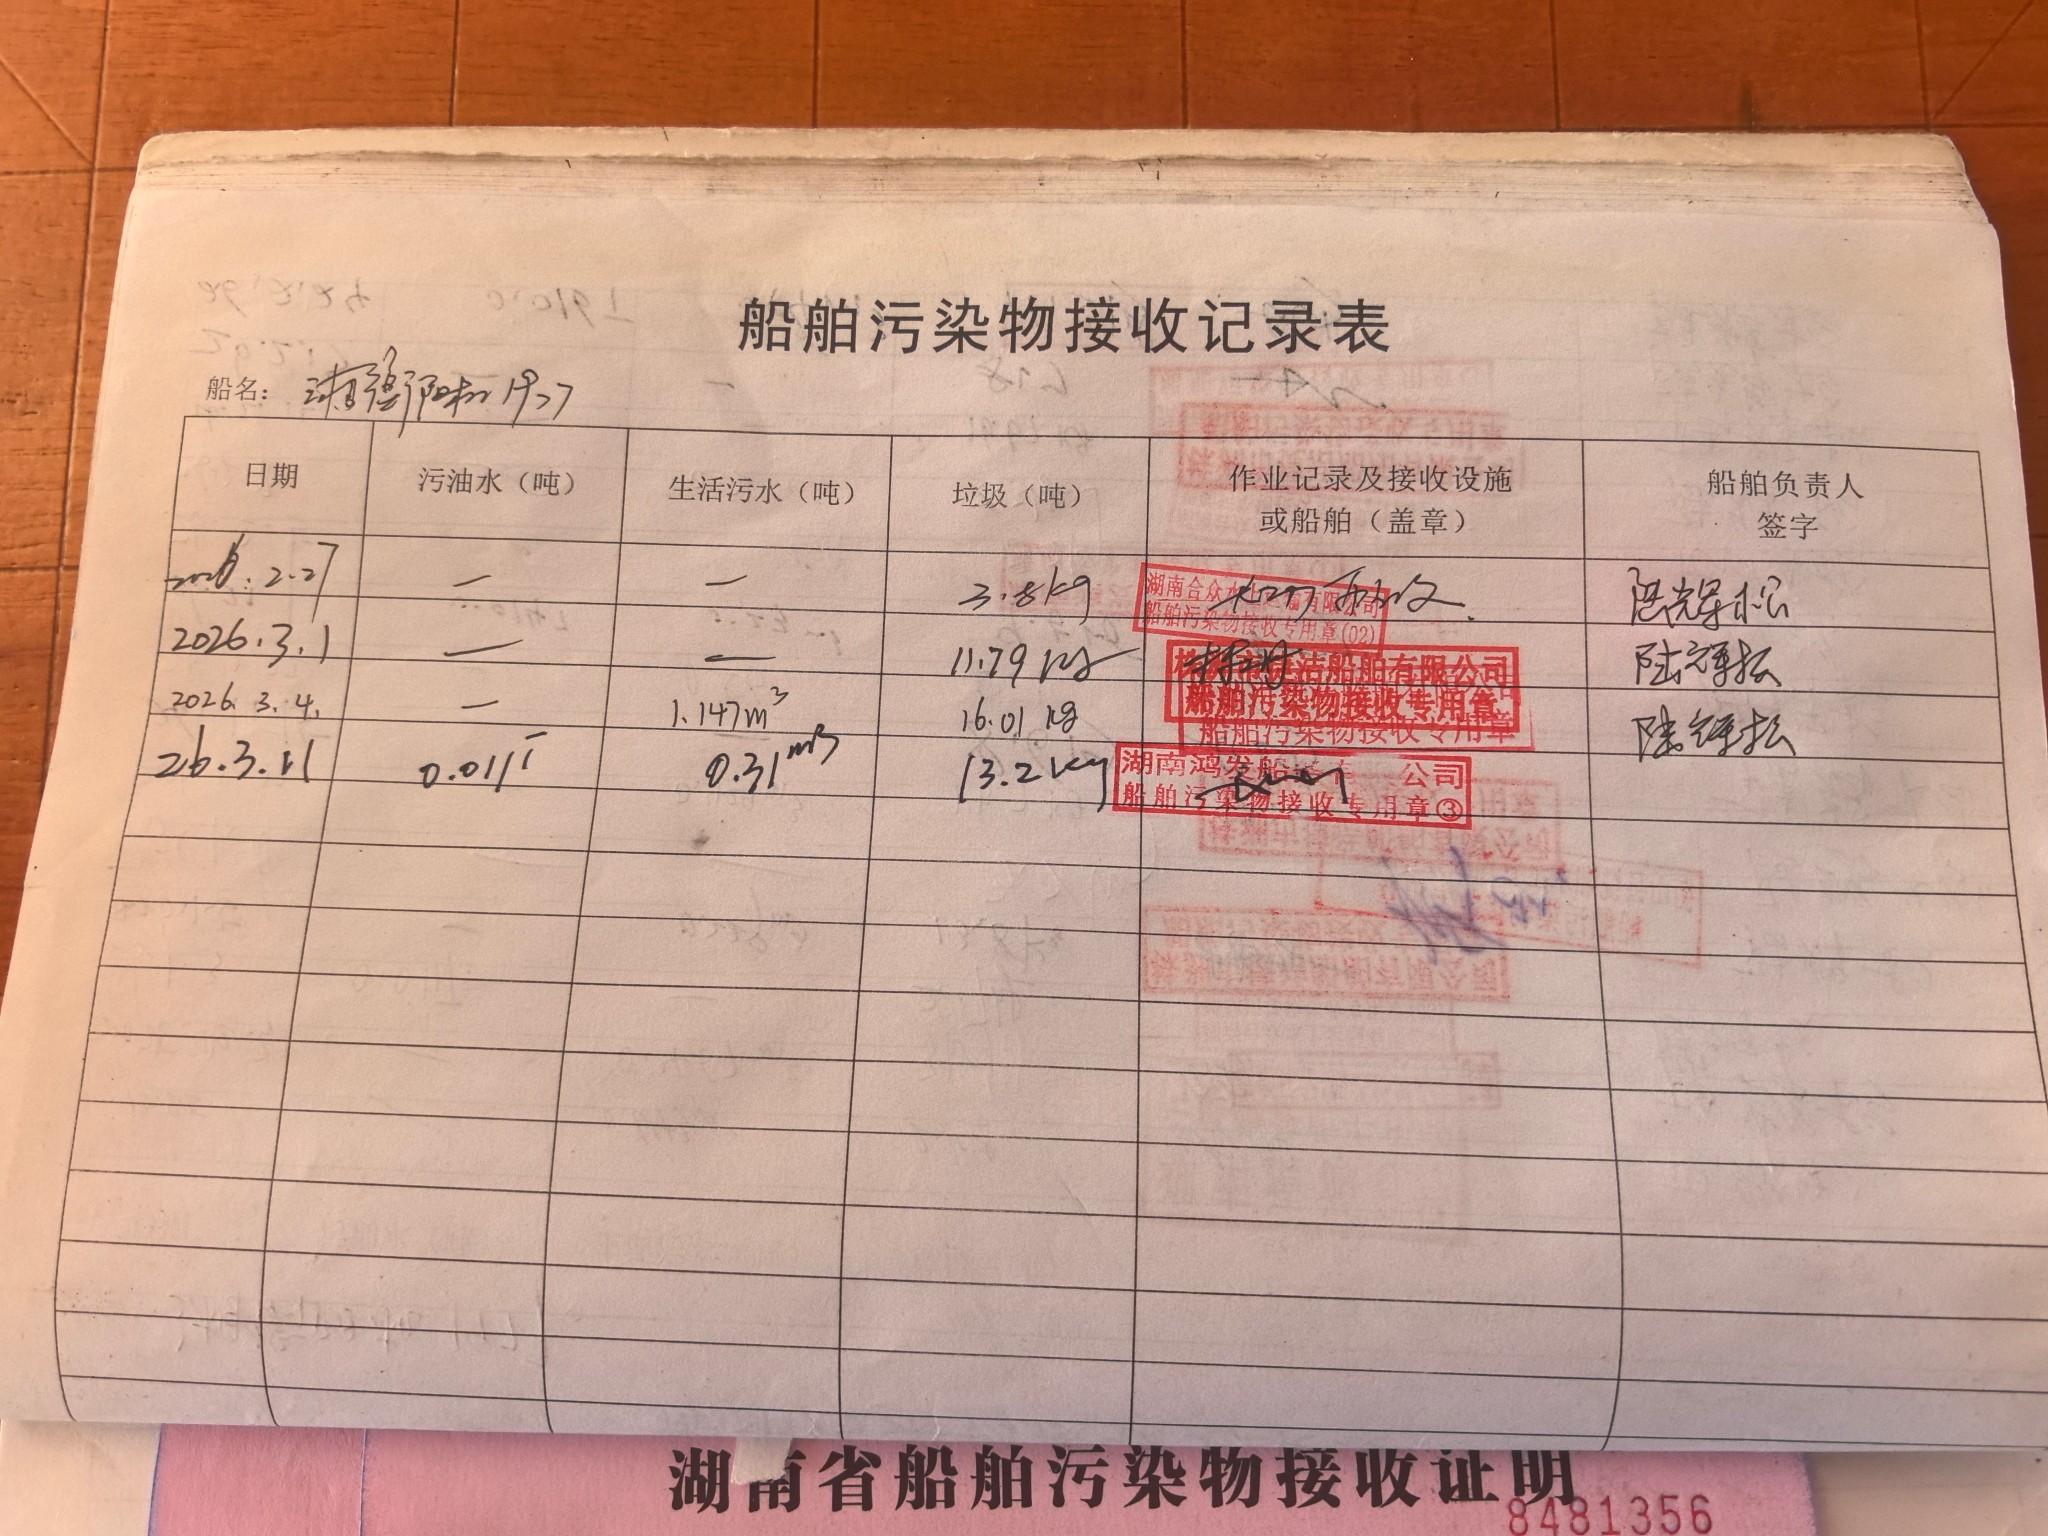 船舶污染物接收记录表
船名：湘衡阳机
日期 污油水（吨） 生活污水（吨） 垃圾（吨） 作业记录及接收设施或船舶（盖章） 船舶负责人签字
2026.2.27 — — 3.8kg 湖南合众水上运输有限公司 船舶污染物接收专用章(02)
2026.3.1 — — 11.79 kg 洁船舶有限公司 船舶污染物接收专用章 陆辉松
2026.3.4. — 1.147m³ 16.01 kg 船舶污染物接收专用章 陆辉松
26.3.11 0.01T 0.31m³ 13.2kg 湖南鸿发船 公司 船舶污染物接收专用章③
湖南省船舶污染物接收证明
8481356